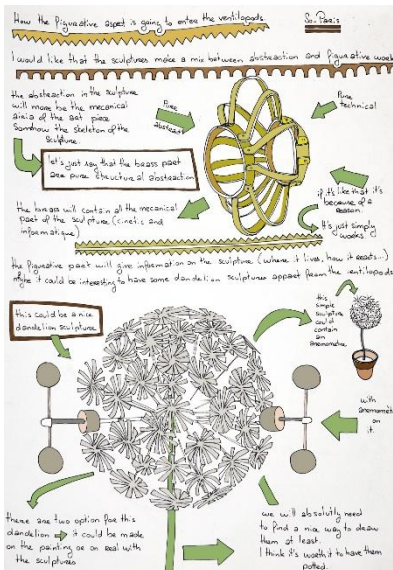 How the figurative aspect is going to enter the ventilopods.
So. Paris
I would like that the sculptures make a mix between abstraction and figurative work
the abstraction in the sculpture
will more be the mecanical
area of the art piece
Somhow the skeleton of the
sculpture.
Pure
abstract
Pure
technical
let's just say that the brass part
are pure structural abstraction
if it's like that it's
because of a
reason.
the brass will contain all the mecanical
part of the sculpture (cinetic and
informatique)
It's just simply
works.
the figurative part will give information on the sculpture (where it lives, how it reacts...)
maybe it could be interesting to have some dandelion sculptures appart from the ventilopods
this could be a nice
dandelion sculpture
this
simple
sculpture
could
contain
an anemometre
with
anemometre
on
it.
there are two option for this
dandelion it could be made
on the painting or on real with
the sculptures
we will absolutly need
to find a nice way to draw
them at least.
I think it's worth it to have them
potted.